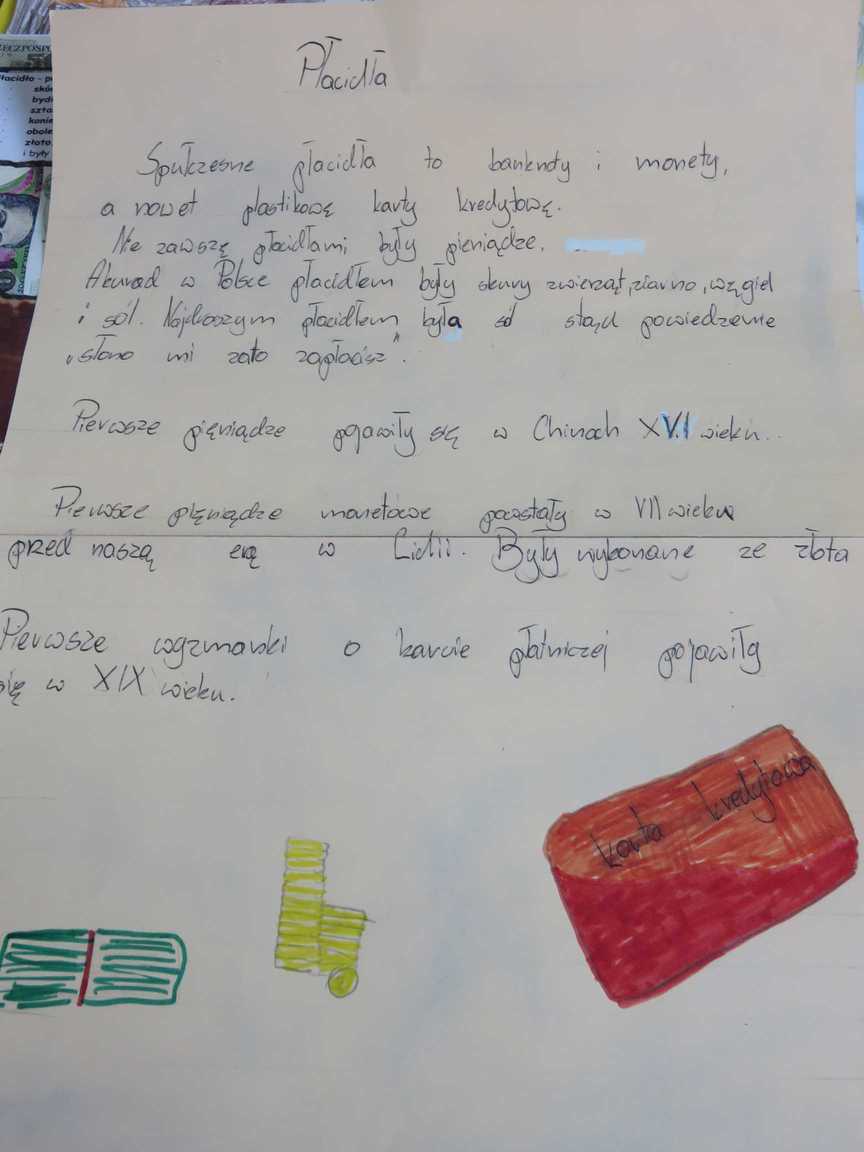 RZECZPOSPO
łacidło - p
skó
bydł
szta
konie
obole
złoto,
i były
Płacidła
Spułczesne płacidła to banknoty i monety,
a nawet plastikowę karty kredytowę.
Nie zawszę płacidłami były pieniądze.
Akurad w Polsce płacidłem były skury zwierząt, ziarno, węgiel
i sól. Najdroszym płacidłem była sól stąd powiedzenie
„słono mi zato zapłacisz”.
Pierwsze pięniądze pojawiły się w Chinach XVI wieku..
Pierwsze pięniądze monetowe powstały w VII wieku
przed naszą erą w Lidii. Były wykonane ze złota
Pierwsze wgzmianki o karcie płatniczej pojawiły
się w XIX wieku.
karta kredytowa